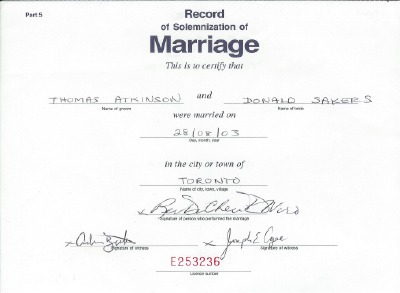 Part 5
Record
of Solemnization of
Marriage
This is to certify that
THOMAS ATKINSON and DONALD SAKERS
Name of groom
were married on
28/08/03
Day, month, year
in the city or town of
TORONTO
Name of city, town, village
Signature of person who performed the marriage
x x Joseph E. Cope
Signature of witness Signature of witness
E253236
Licence number